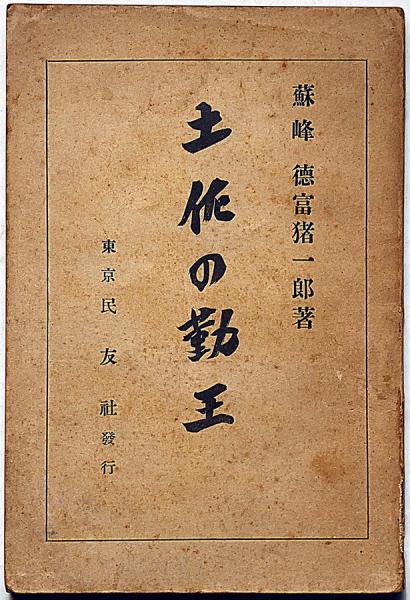 蘇峰 德富猪一郎著
土佐の勤王
東京民友社發行